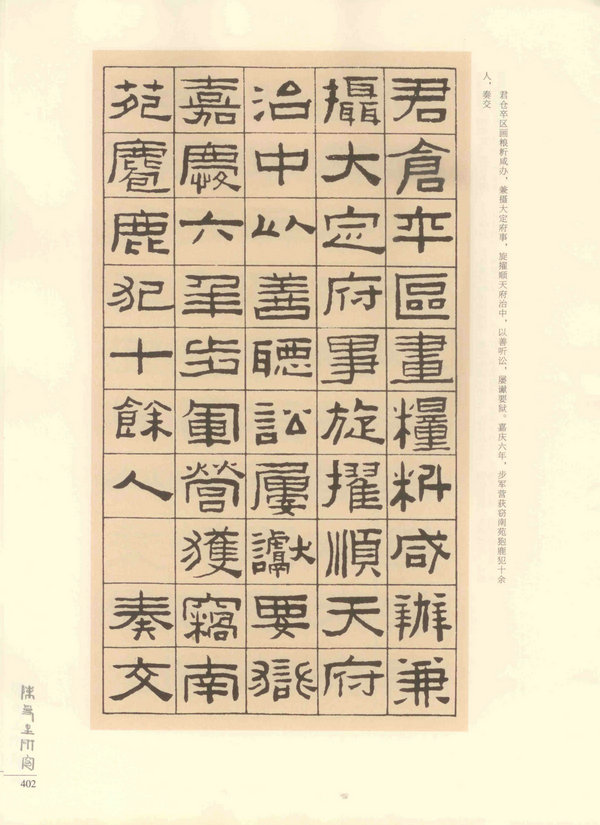 君倉卒區畫糧料咸辦兼
攝大定府事旋擢順天府
治中以善聽訟屢讞要獄
嘉慶六年步軍營獲竊南
苑麅鹿犯十餘人 奏交
君仓卒区画粮料咸办，兼摄大定府事，旋擢顺天府治中，以善听讼，屡谳要狱。嘉庆六年，步军营获窃南苑狍鹿犯十余
人，奏交
402